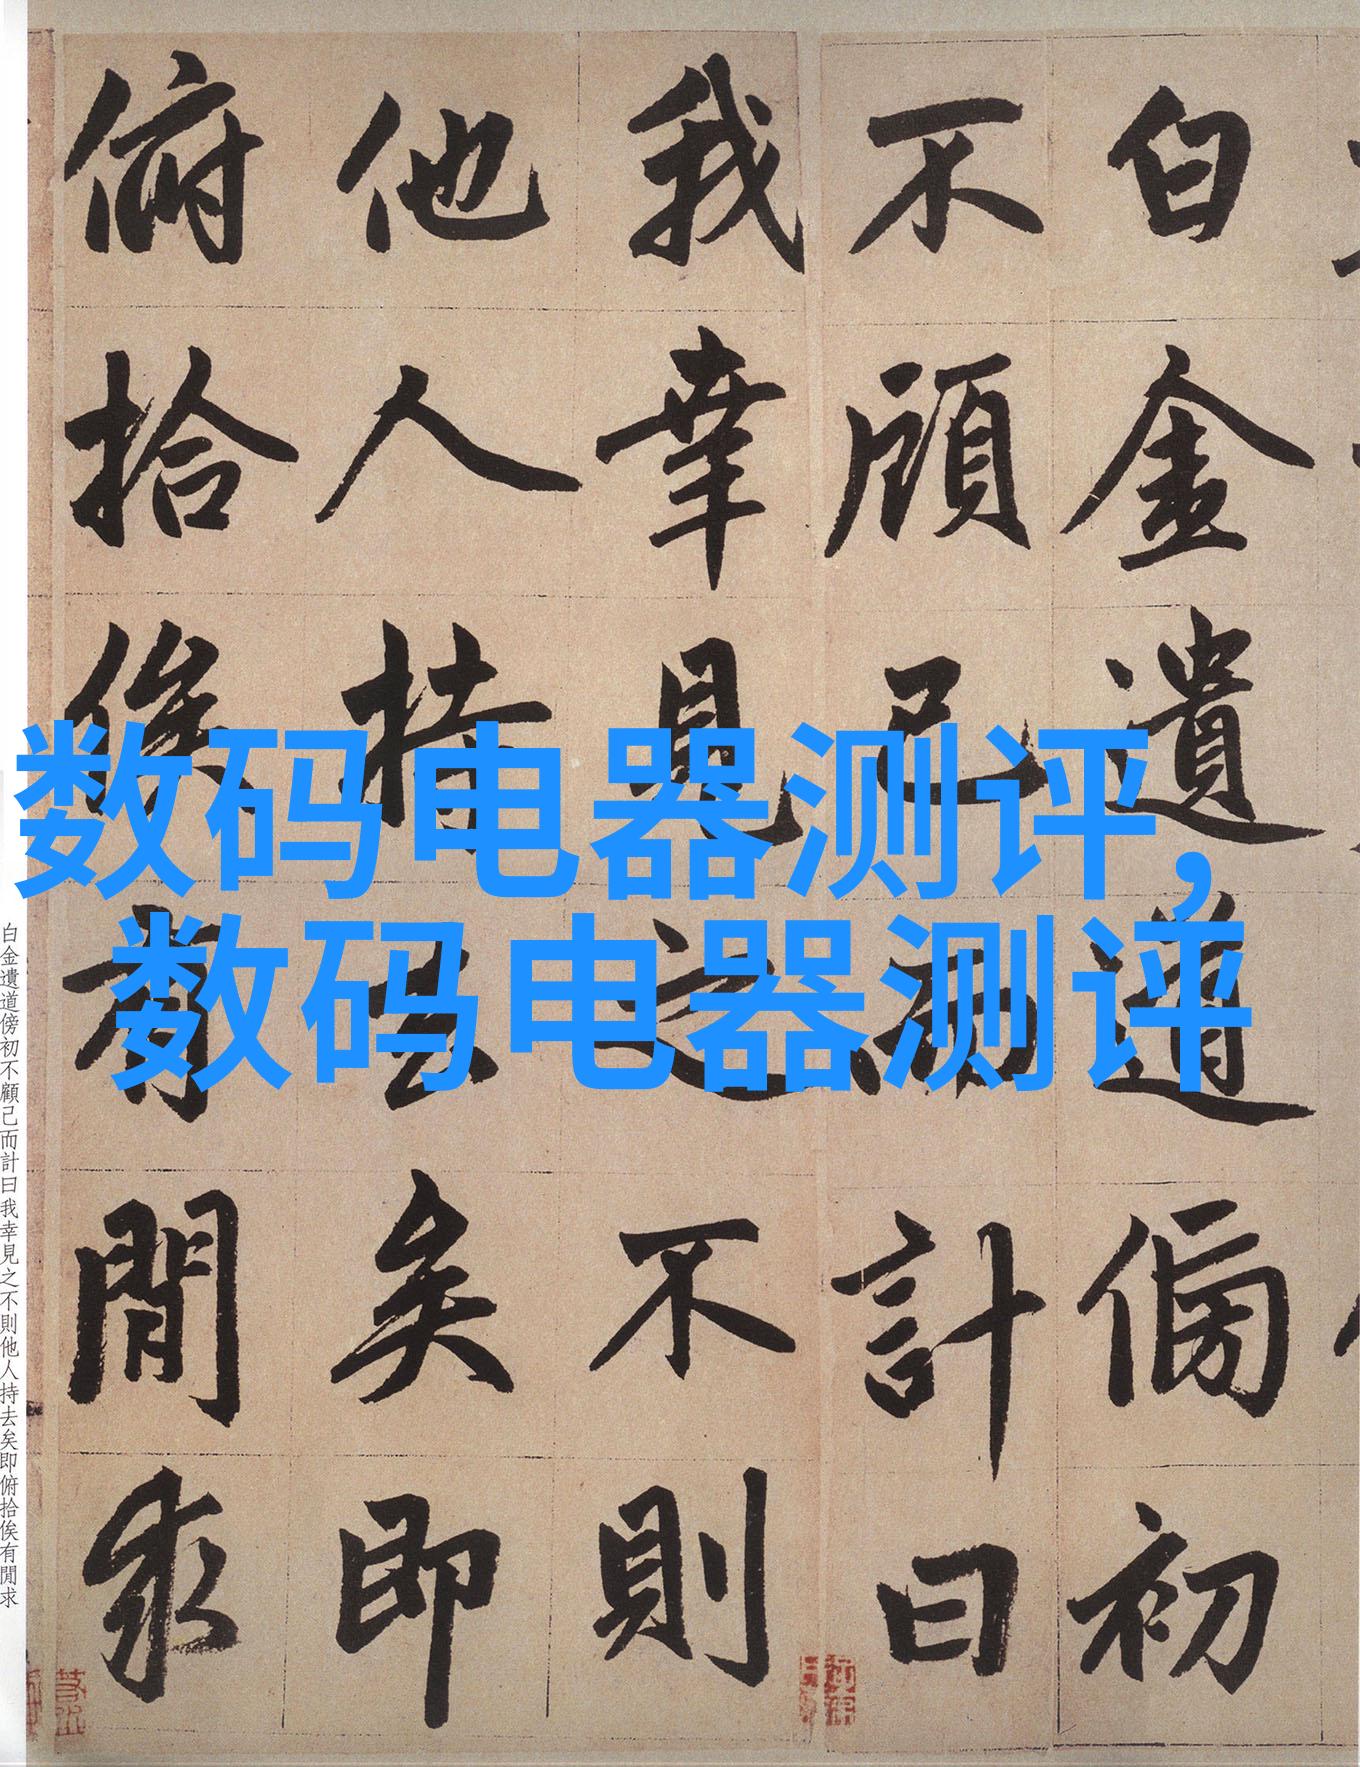 白金遺道傍初
不顧己而計曰
我幸見之不則
他人持去矣即
俯拾俟有閒求
数码电器测评,
数码电器测评
白金遺道傍初不顧己而計曰我幸見之不則他人持去矣即俯拾俟有閒求